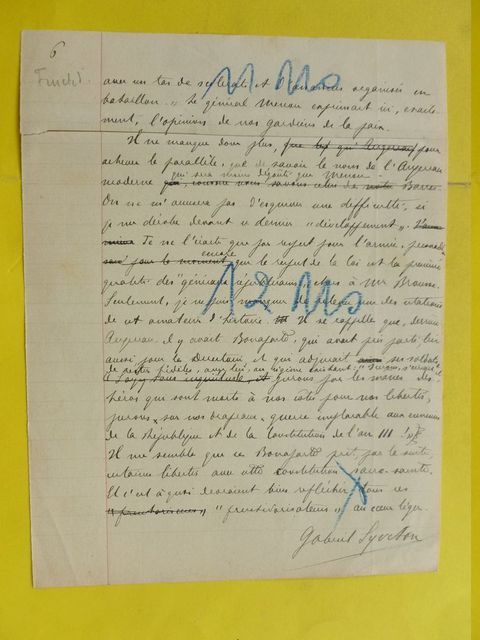 6
avec un tas de scélérats et d'assassins organisés en
bataillon." Le général Menou exprimait ici, exacte-
ment, l'opinion de nos gardiens de la paix.
Il ne manque donc plus, pour
achever le parallèle, que de savoir le nom de l'Augereau
qui sera moins dégoûté que Menou.
moderne
On ne m'accusera pas d'esquiver une difficulté, si
je me dérobe devant ce dernier "développement".
Je ne l'écarte que par respect pour l'armée,
encore
que le respect de la loi est la première
qualité des "généraux républicains, chers à Mr Brousse.
Seulement, je ne puis des citations
de cet amateur d'histoire. Il se rappelle que, derrière
Augereau, il y avait Bonaparte, qui avait pris parti lui
aussi pour le Directoire, et qui adjurait ses soldats
de rester fidèles, avec lui, au régime existant:
jurons par les mânes des
héros qui sont morts à nos côtés pour nos libertés,
jurons, sur nos drapeaux, guerre implacable aux ennemis
de la République et de la Constitution de l'an III !"
Il me semble que ce Bonaparte prit, par la suite,
certaines libertés avec cette constitution sacro-sainte.
Et c'est à quoi devraient bien réfléchir tous ces
"fructidorisateurs" au cœur léger.
Gabriel Syveton